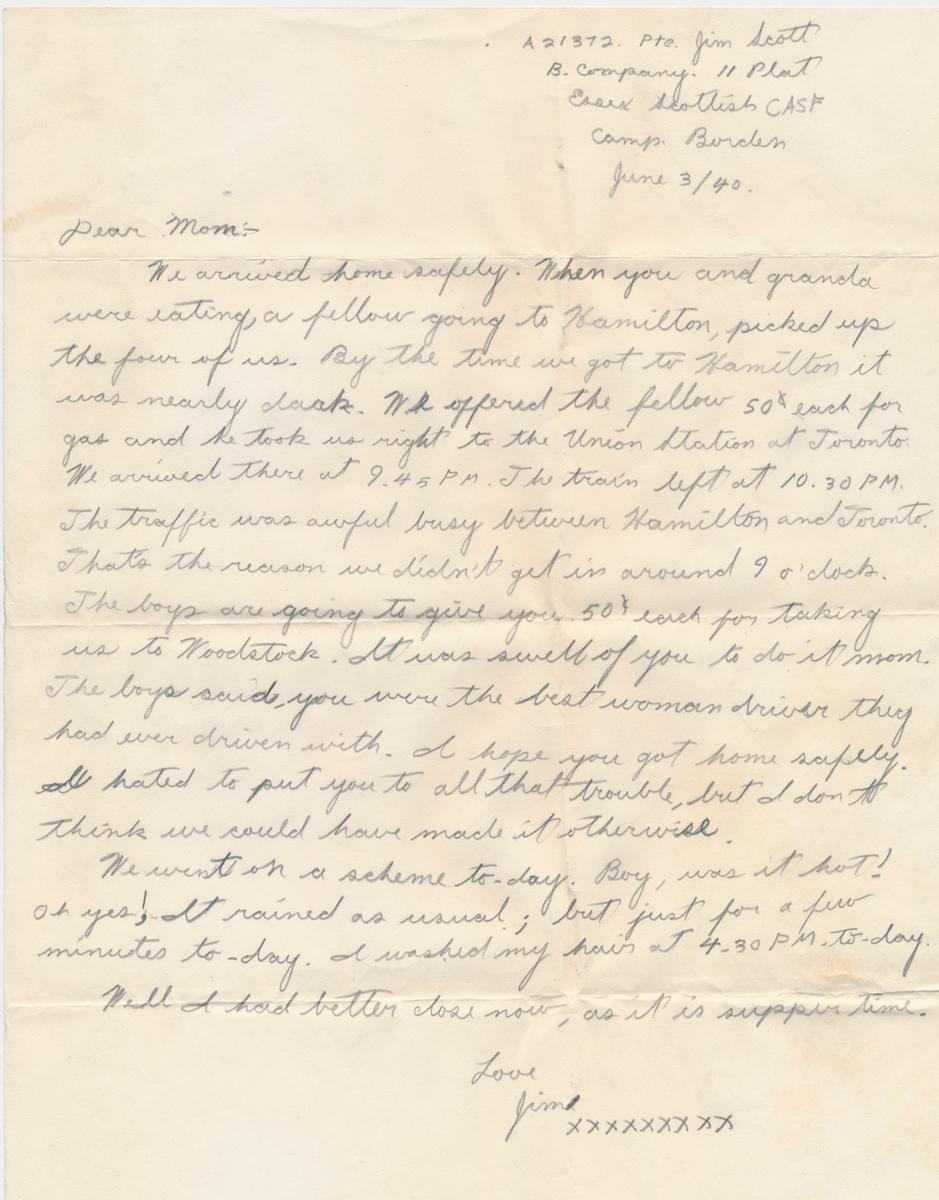 A21372. Pte. Jim Scott
B. Company. 11 Plat
Essex Scottish CASF
Camp. Borden
June 3/40.
Dear Mom:-
We arrived home safely. When you and granda
were eating, a fellow going to Hamilton, picked up
the four of us. By the time we got to Hamilton it
was nearly daark. We offered the fellow 50¢ each for
gas and he took us right to the Union Station at Toronto.
We arrived there at 9.45 PM. The train left at 10.30 PM.
The traffic was awful busy between Hamilton and Toronto.
That's the reason we didn't get in around 9 o'clock.
The boys are going to give you 50¢ each for taking
us to Woodstock. It was swell of you to do it mom.
The boys said, you were the best woman driver they
had ever driven with. I hope you got home safely.
I hated to put you to all that trouble, but I don't
think we could have made it otherwise.
We went on a scheme to-day. Boy, was it hot!
Oh yes! It rained as usual; but just for a few
minutes to-day. I washed my hair at 4.30 PM. to-day.
Well I had better close now, as it is supper time.
Love
Jim
xxxxxxxxx